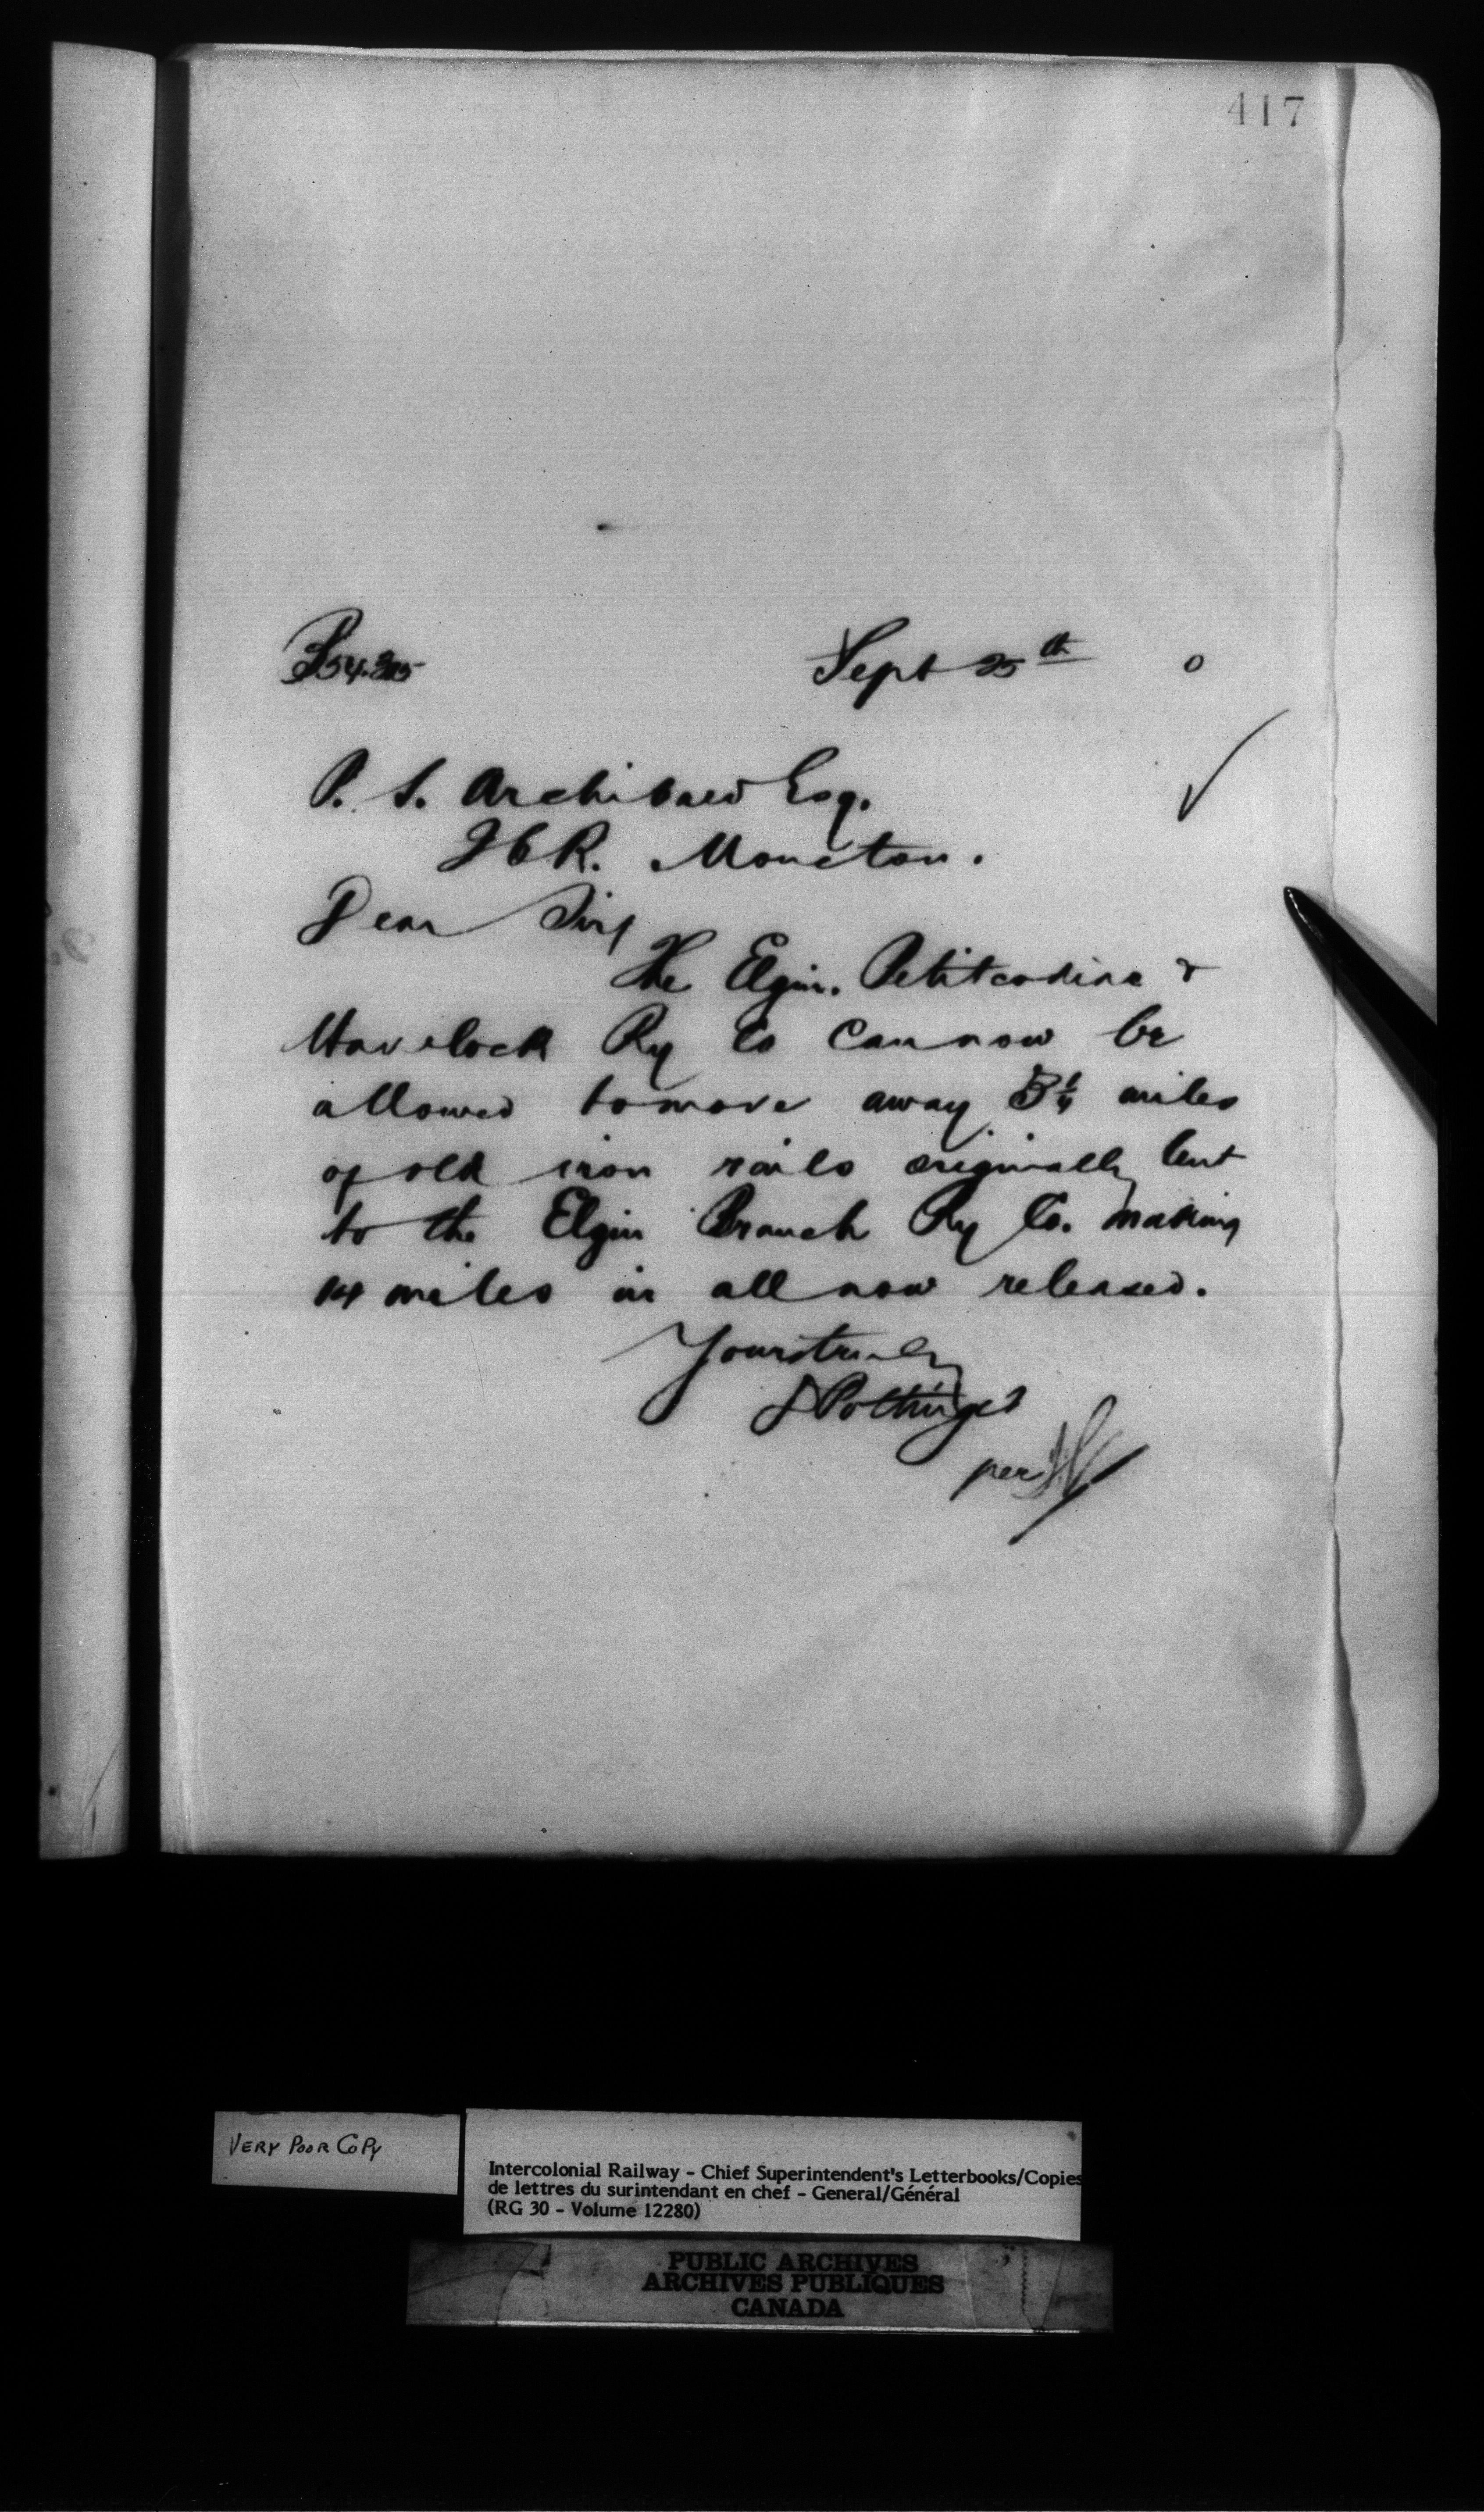 417
Sept 25th 0
P. S. Archibald Esq.
I C R. Moncton.
Dear Sir,
The Elgin. Petitcodiac &
Havelock Ry Co can now be
allowed to move away 3¼ miles
of old iron rails originally lent
to the Elgin Branch Ry Co. making
14 miles in all now released.
Yours truly
D Pottinger
per
VERY POOR COPY
Intercolonial Railway - Chief Superintendent's Letterbooks/Copies
de lettres du surintendant en chef - General/Général
(RG 30 - Volume 12280)
PUBLIC ARCHIVES
ARCHIVES PUBLIQUES
CANADA